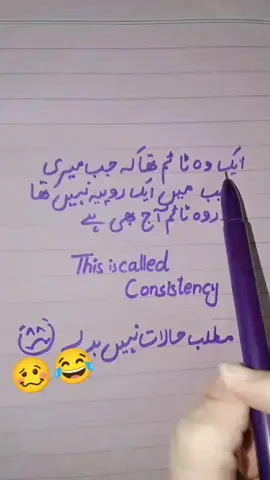 ایک وہ ٹائم تھا کہ جب میری
میں ایک روپیہ نہیں تھا
وہ ٹائم آج بھی ہے
This is called
Consistency
مطلب حالات نہیں بدلے